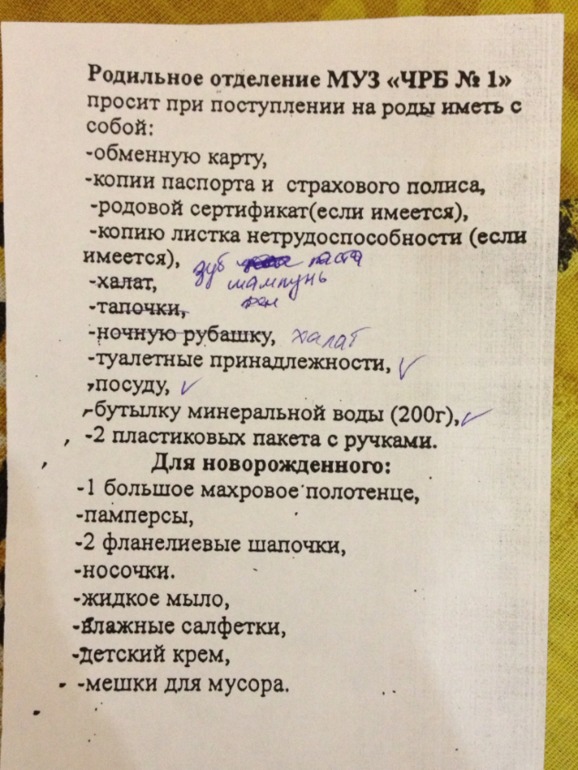 Родильное отделение МУЗ «ЧРБ № 1»
просит при поступлении на роды иметь с
собой:
-обменную карту,
-копии паспорта и страхового полиса,
-родовой сертификат(если имеется),
-копию листка нетрудоспособности (если
имеется), зуб паста
-халат, шампунь
-тапочки,
-ночную рубашку, халат
-туалетные принадлежности,
,посуду,
-бутылку минеральной воды (200г),
-2 пластиковых пакета с ручками.
Для новорожденного:
-1 большое махровое полотенце,
-памперсы,
-2 фланелиевые шапочки,
-носочки.
-жидкое мыло,
-влажные салфетки,
-детский крем,
-мешки для мусора.